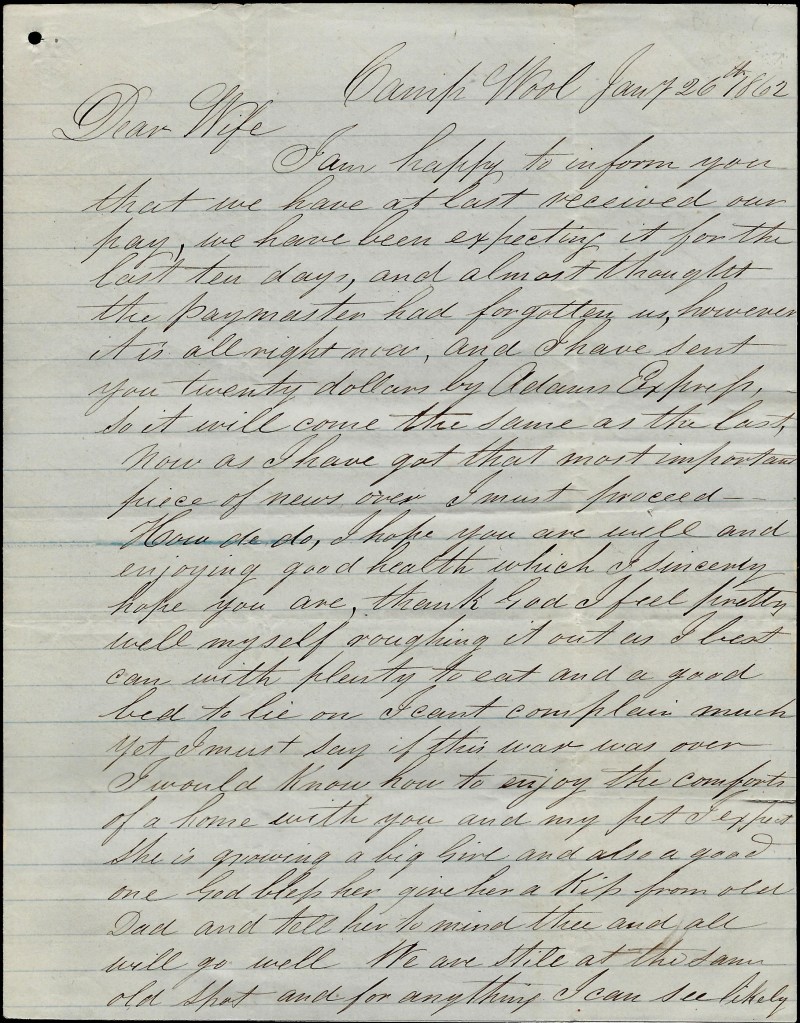 Camp Wool Jany 26th 1862
Dear Wife
I am happy to inform you
that we have at last received our
pay, we have been expecting it for the
last ten days, and almost thought
the paymaster had forgotten us, however
it is all right now, and I have sent
you twenty dollars by Adams Express,
so it will come the same as the last,
Now as I have got that most important
piece of news over I must proceed —
How de do, I hope you are well and
enjoying good health which I sincerly
hope you are, thank God I feel pretty
well myself roughing it out as I best
can with plenty to eat and a good
bed to lie on I cant complain much
yet I must say if this war was over
I would know how to enjoy the comforts
of a home with you and my pet I expect
she is growing a big Girl and also a good
one God bless her give her a Kiss from old
Dad and tell her to mind thee and all
will go well We are still at the same
old spot and for anything I can see likely